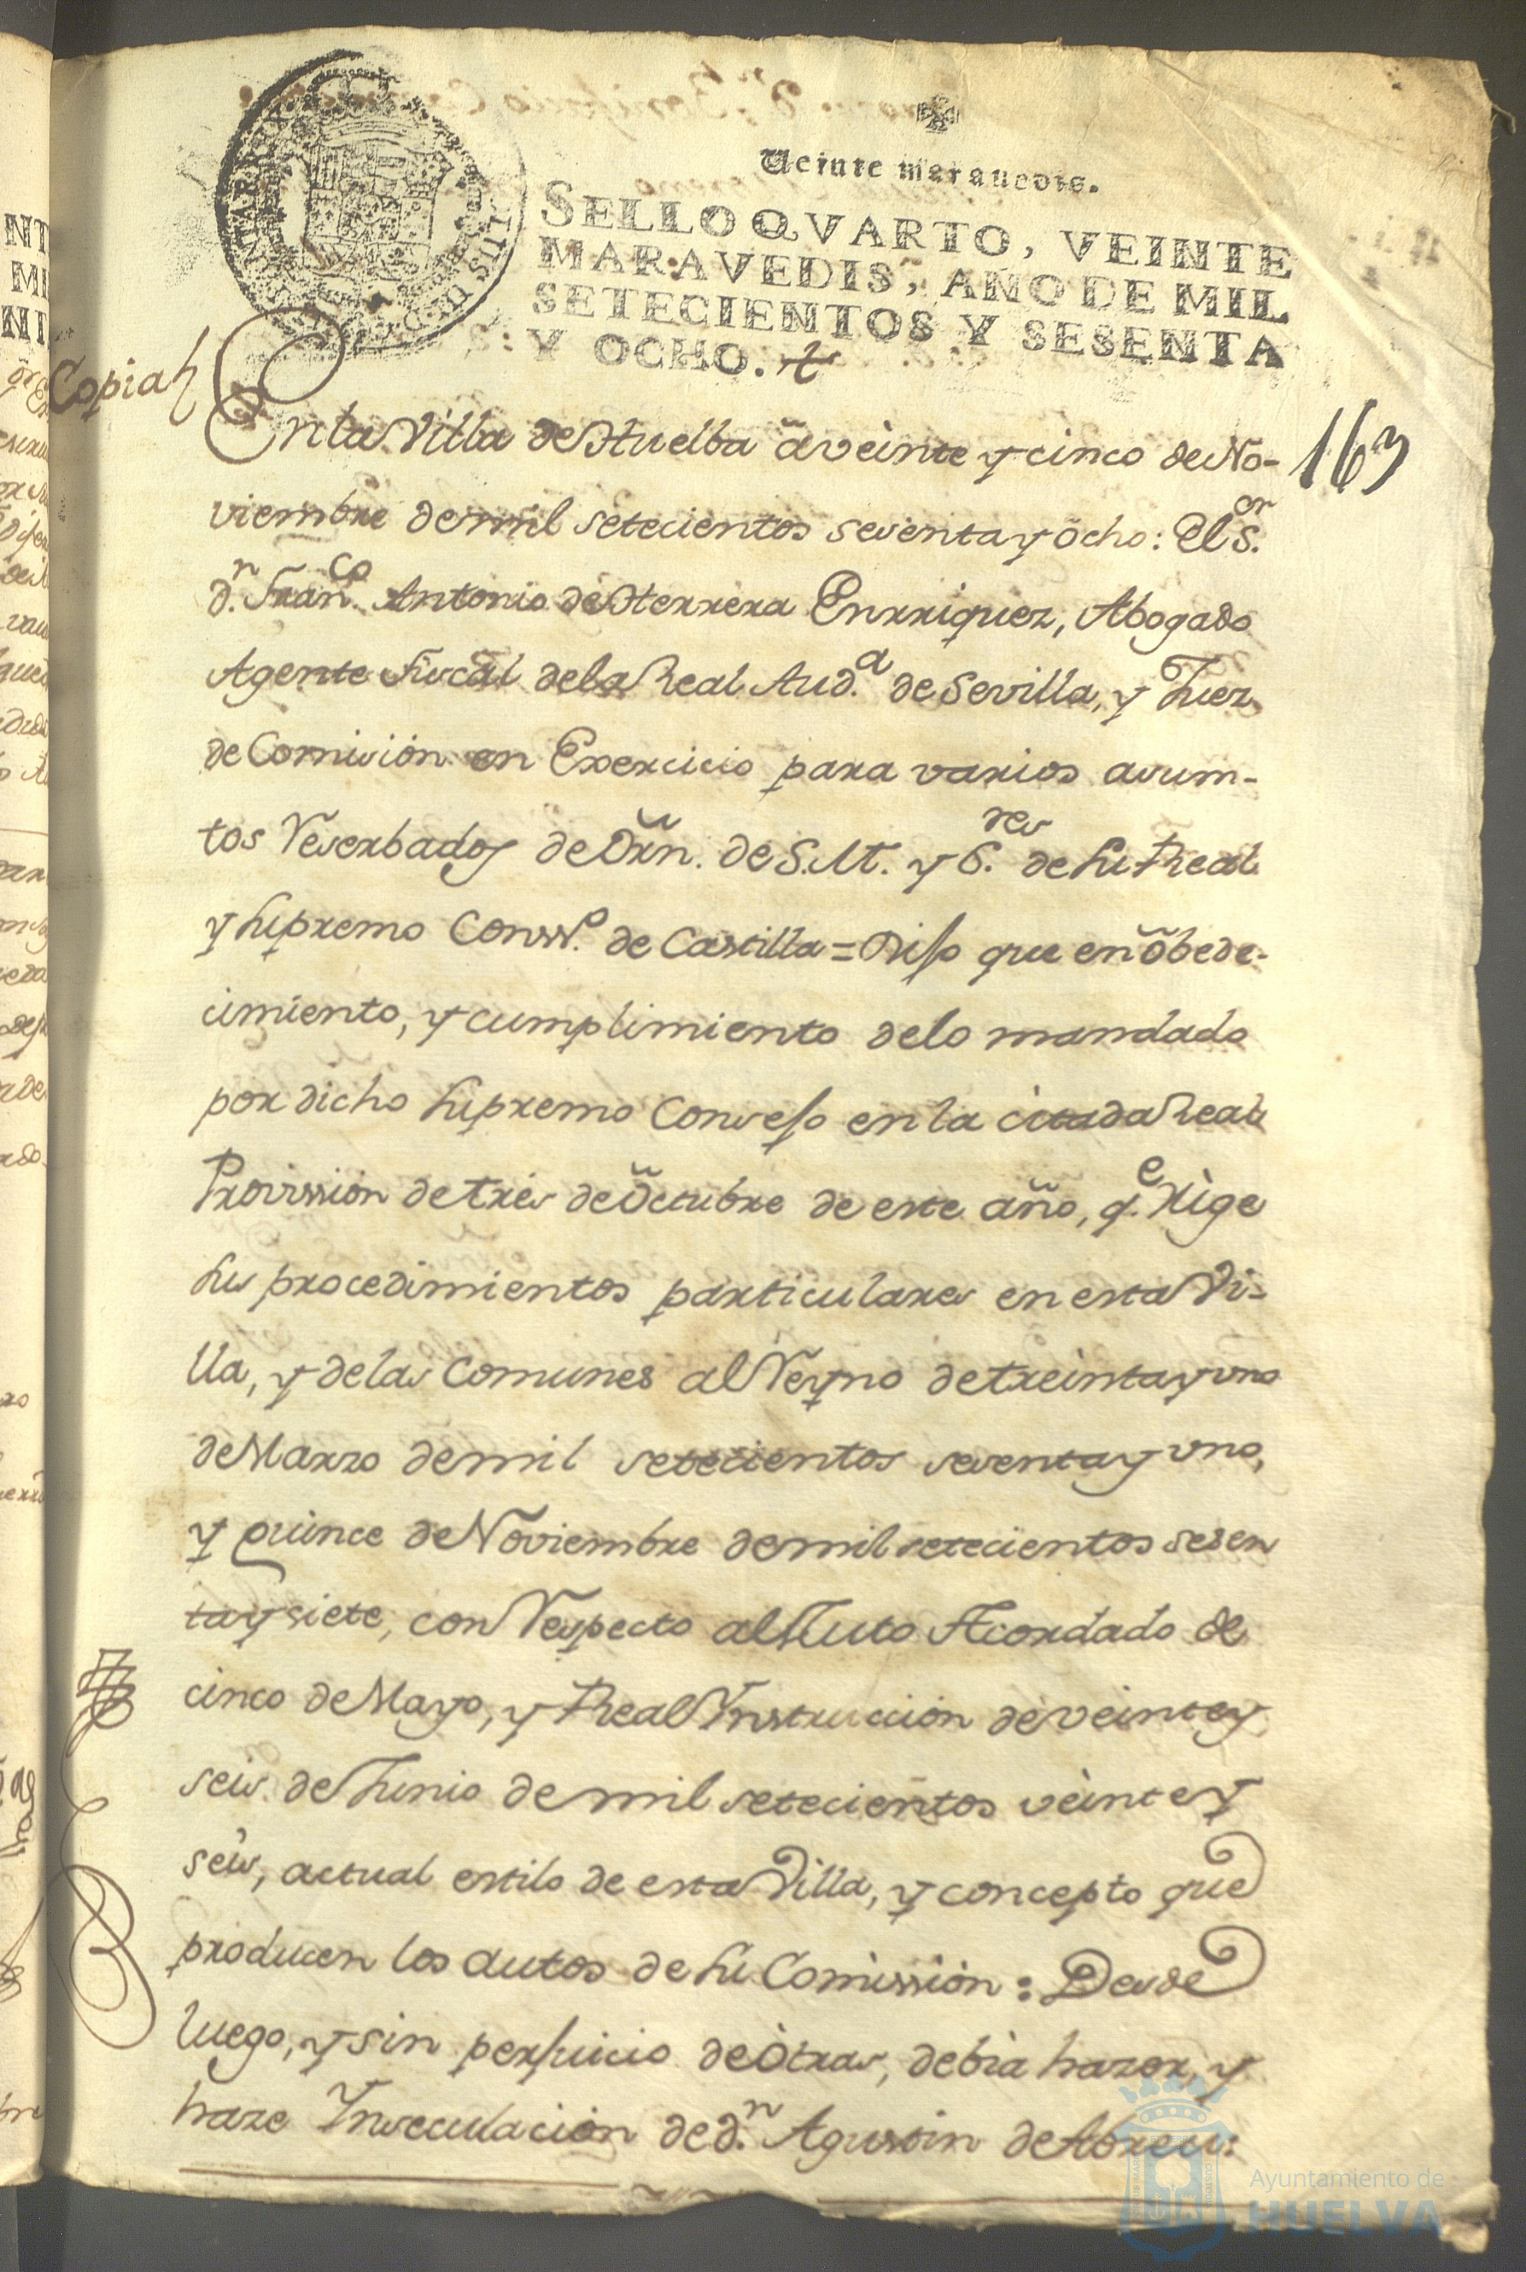 Veinte marauedis.
SELLO QVARTO, VEINTE
MARAVEDIS, AÑO DE MIL
SETECIENTOS Y SESENTA
Y OCHO.
Copia
163
En la Villa de Huelba à veinte y cinco de No-
viembre de mil setecientos sesenta y ocho: El S.or
d.n Fran.co Antonio de Herrera Enrriquez, Abogado
Agente Fiscal de la Real Aud.a de Sevilla, y Juez
de Comisión en Exercicio para varios asum-
tos Reserbados de Orn. de S.M. y S.res de su Real
y Supremo Conss.o de Castilla = Dijo que en obede-
cimiento, y cumplimiento de lo mandado
por dicho Supremo Consejo en la citada Real
Provission de tres de Octubre de este año, q.e rige
sus procedimientos particulares en esta Vi-
lla, y de las Comunes al Reyno de treinta y uno
de Marzo de mil setecientos sesenta y uno,
y quince de Noviembre de mil setecientos sesen
ta y siete, con Respecto al Auto Acordado de
cinco de Mayo, y Real Ynstruccion de veinte y
seis de Junio de mil setecientos veinte y
seis, actual estilo de esta Villa, y concepto que
producen los autos de su Comission: Desde
luego, y sin perjuicio de otras, debia hazer, y
haze Ynseculacion de d.n Agustin de Abreu:
Ayuntamiento de
HUELVA